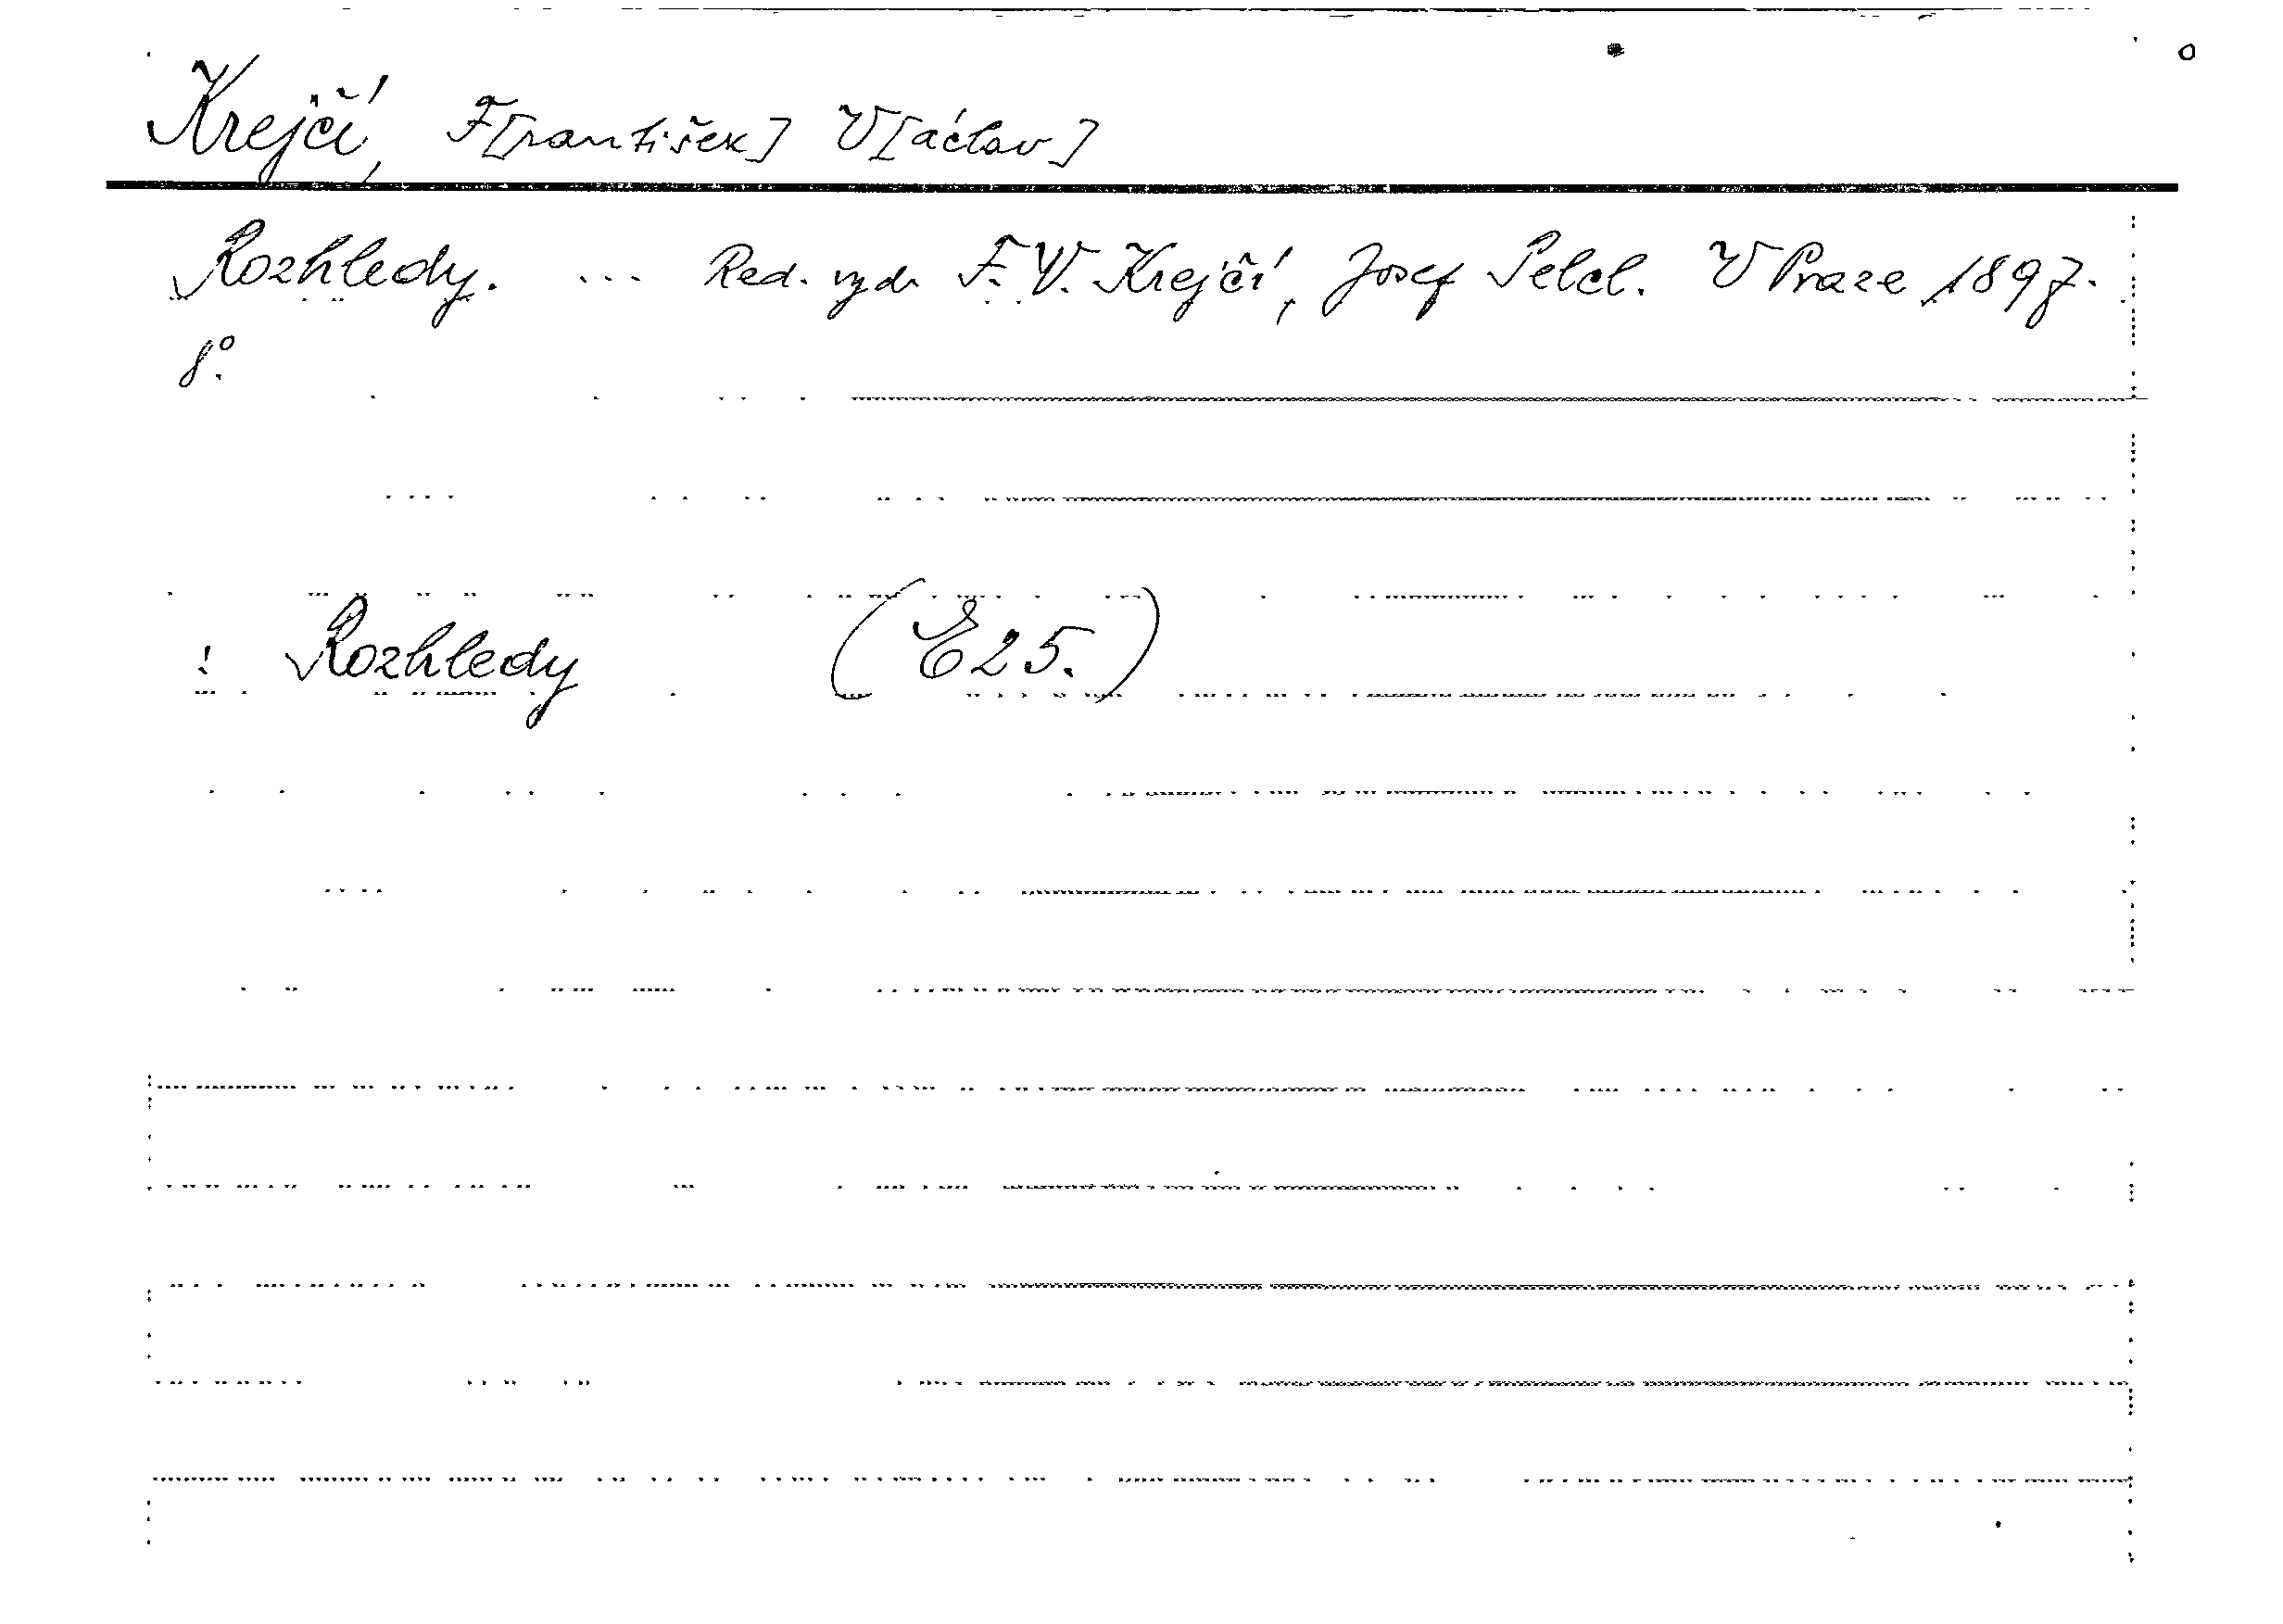 Krejčí, F[rantišek] V[áclav]
Rozhledy. ... Red. vyd. F. V. Krejčí, Josef Pelcl. V Praze 1897.
8°.
: Rozhledy (E 25.)